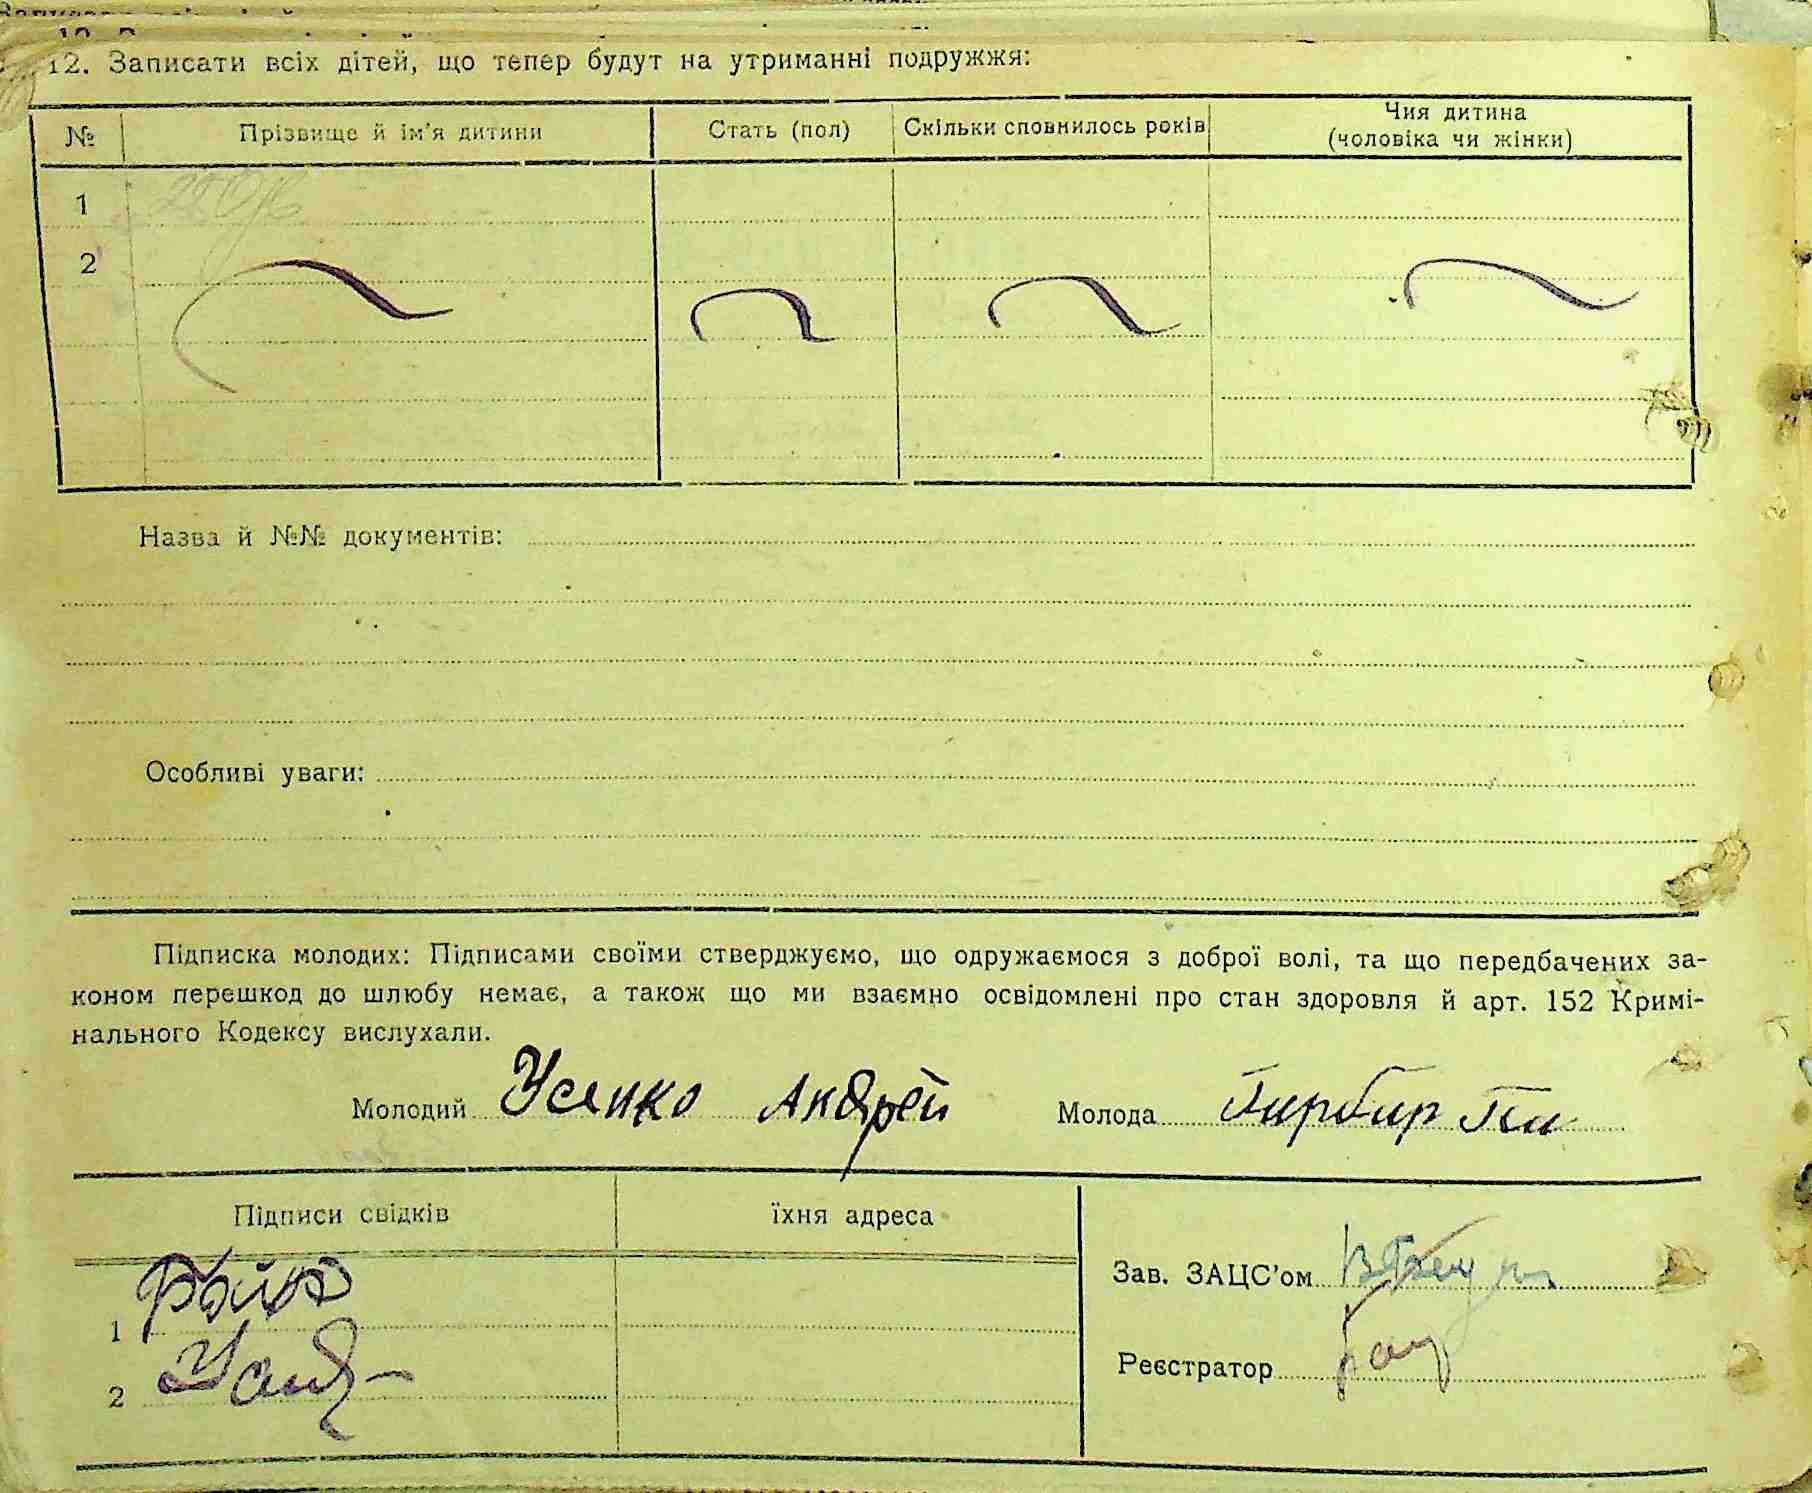 12. Записати всіх дітей, що тепер будут на утриманні подружжя:
№ Прізвище й ім'я дитини Стать (пол) Скільки сповнилось років Чия дитина (чоловіка чи жінки)
1
2
Назва й №№ документів:
Особливі уваги:
Підписка молодих: Підписами своїми стверджуємо, що одружаємося з доброї волі, та що передбачених за-
коном перешкод до шлюбу немає, а також що ми взаємно освідомлені про стан здоровля й арт. 152 Кримі-
нального Кодексу вислухали.
Молодий Усенко Андрей Молода Гирбир
Підписи свідків їхня адреса
Зав. ЗАЦС'ом
1
Реєстратор
2